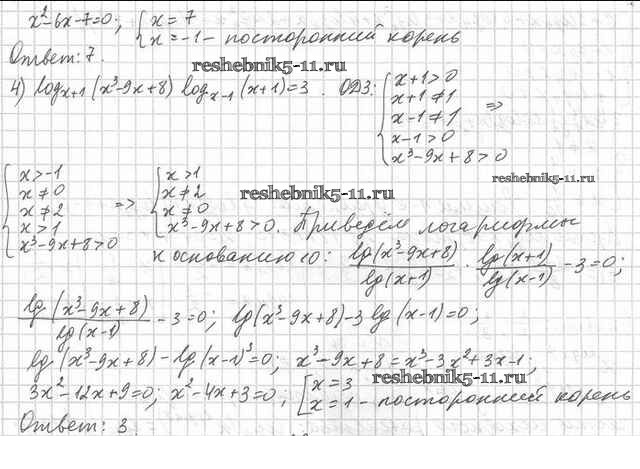 x²-6x-7=0; { x=7
x=-1 - посторонний корень
Ответ: 7.
reshebnik5-11.ru
4) log_{x+1}(x³-9x+8) log_{x-1}(x+1)=3. ОДЗ: { x+1>0
x+1≠1
x-1≠1 =>
x-1>0
x³-9x+8>0
reshebnik5-11.ru
{ x>-1
x≠0
x≠2
x>1
x³-9x+8>0
=> { x>1
x≠2
x≠0
x³-9x+8>0. Приведём логарифмы
reshebnik5-11.ru
к основанию 10: lg(x³-9x+8)/lg(x+1) · lg(x+1)/lg(x-1) -3=0;
lg(x³-9x+8)/lg(x-1) -3=0; lg(x³-9x+8)-3lg(x-1)=0;
lg(x³-9x+8)-lg(x-1)³=0; x³-9x+8=x³-3x²+3x-1;
reshebnik5-11.ru
3x²-12x+9=0; x²-4x+3=0; [ x=3
x=1 - посторонний корень
Ответ: 3